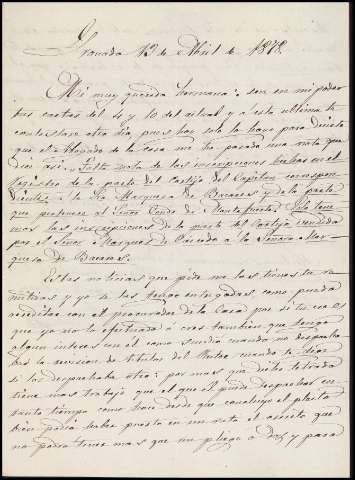 Granada 12 de Abril de 1878
Mi muy querida hermana: son en mi poder
tus cartas del 4 y 10 del actual y a esta ultima te
contestare otro dia, pues hoy solo lo hago para decirte
que el Abogado de la casa me ha pasado una nota que
dice asi. Falta nota de las inscripciones hechas en el
Registro de la parte del Cortijo del Capitan correspon-
diente a la Sra Marquesa de Baranes y de la parte
que pertenece al Señor Conde de Montefuerte. Solo tene-
mos las inscripciones de la parte del Cortijo vendida
por el Señor Marques de Caicedo a la Señora Mar-
quesa de Baranes.
Estas noticias que pide no las tienes tu re-
mitidas y yo se las tengo entregadas, como puedo
acreditar con el procurador de la Casa que si tu crees
que yo no lo efectuado o crees tambien que tengo
algun interes en el como sendio cuando no despacha-
ba la revision de titulos del Soto cuando te dije
si los despachaba otro: por mas que dicho letrado
tiene mas trabajo que el que él puede despachar en
tanto tiempo como hace desde que concluyó el pleito
bien podia haber puesto en un rato el escrito que
no podia tener mas que un pliego o dos y para